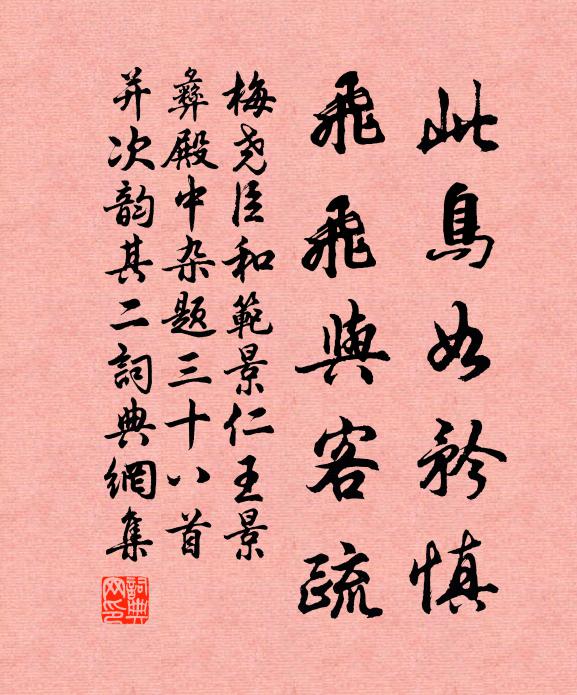 此鳥如矜慎
飛飛與客疏
梅尧臣和範景仁王景
彝殿中杂題三十八首
并次韵其二詞典網集
詞典网印